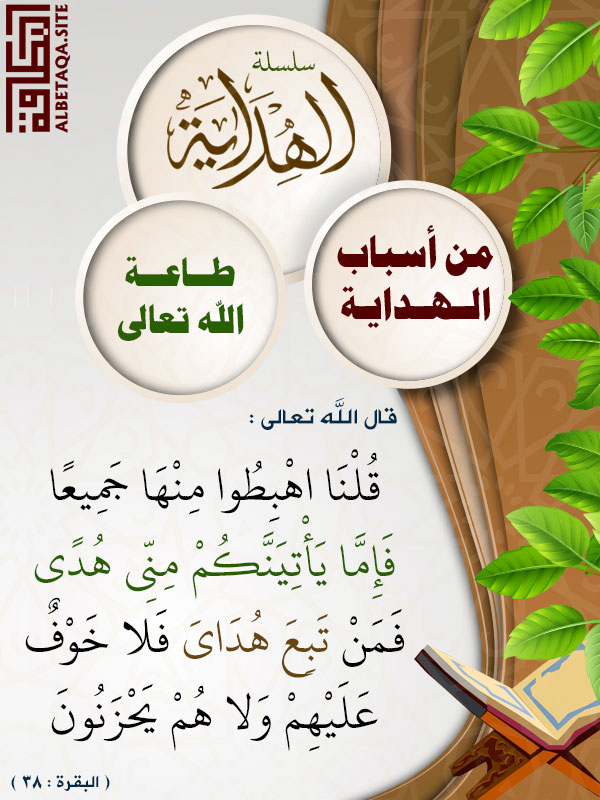 البطاقة
ALBETAQA.SITE
سلسلة
الهُدَايَة
من أسباب
الـهـدايـة
طـاعـة
الله تعالى
قال اللَّه تعالى :
قُلْنَا اهْبِطُوا مِنْهَا جَمِيعًا
فَإِمَّا يَأْتِيَنَّكُمْ مِنِّى هُدًى
فَمَنْ تَبِعَ هُدَاىَ فَلا خَوْفٌ
عَلَيْهِمْ وَلا هُمْ يَحْزَنُونَ
( البقرة : ٣٨ )